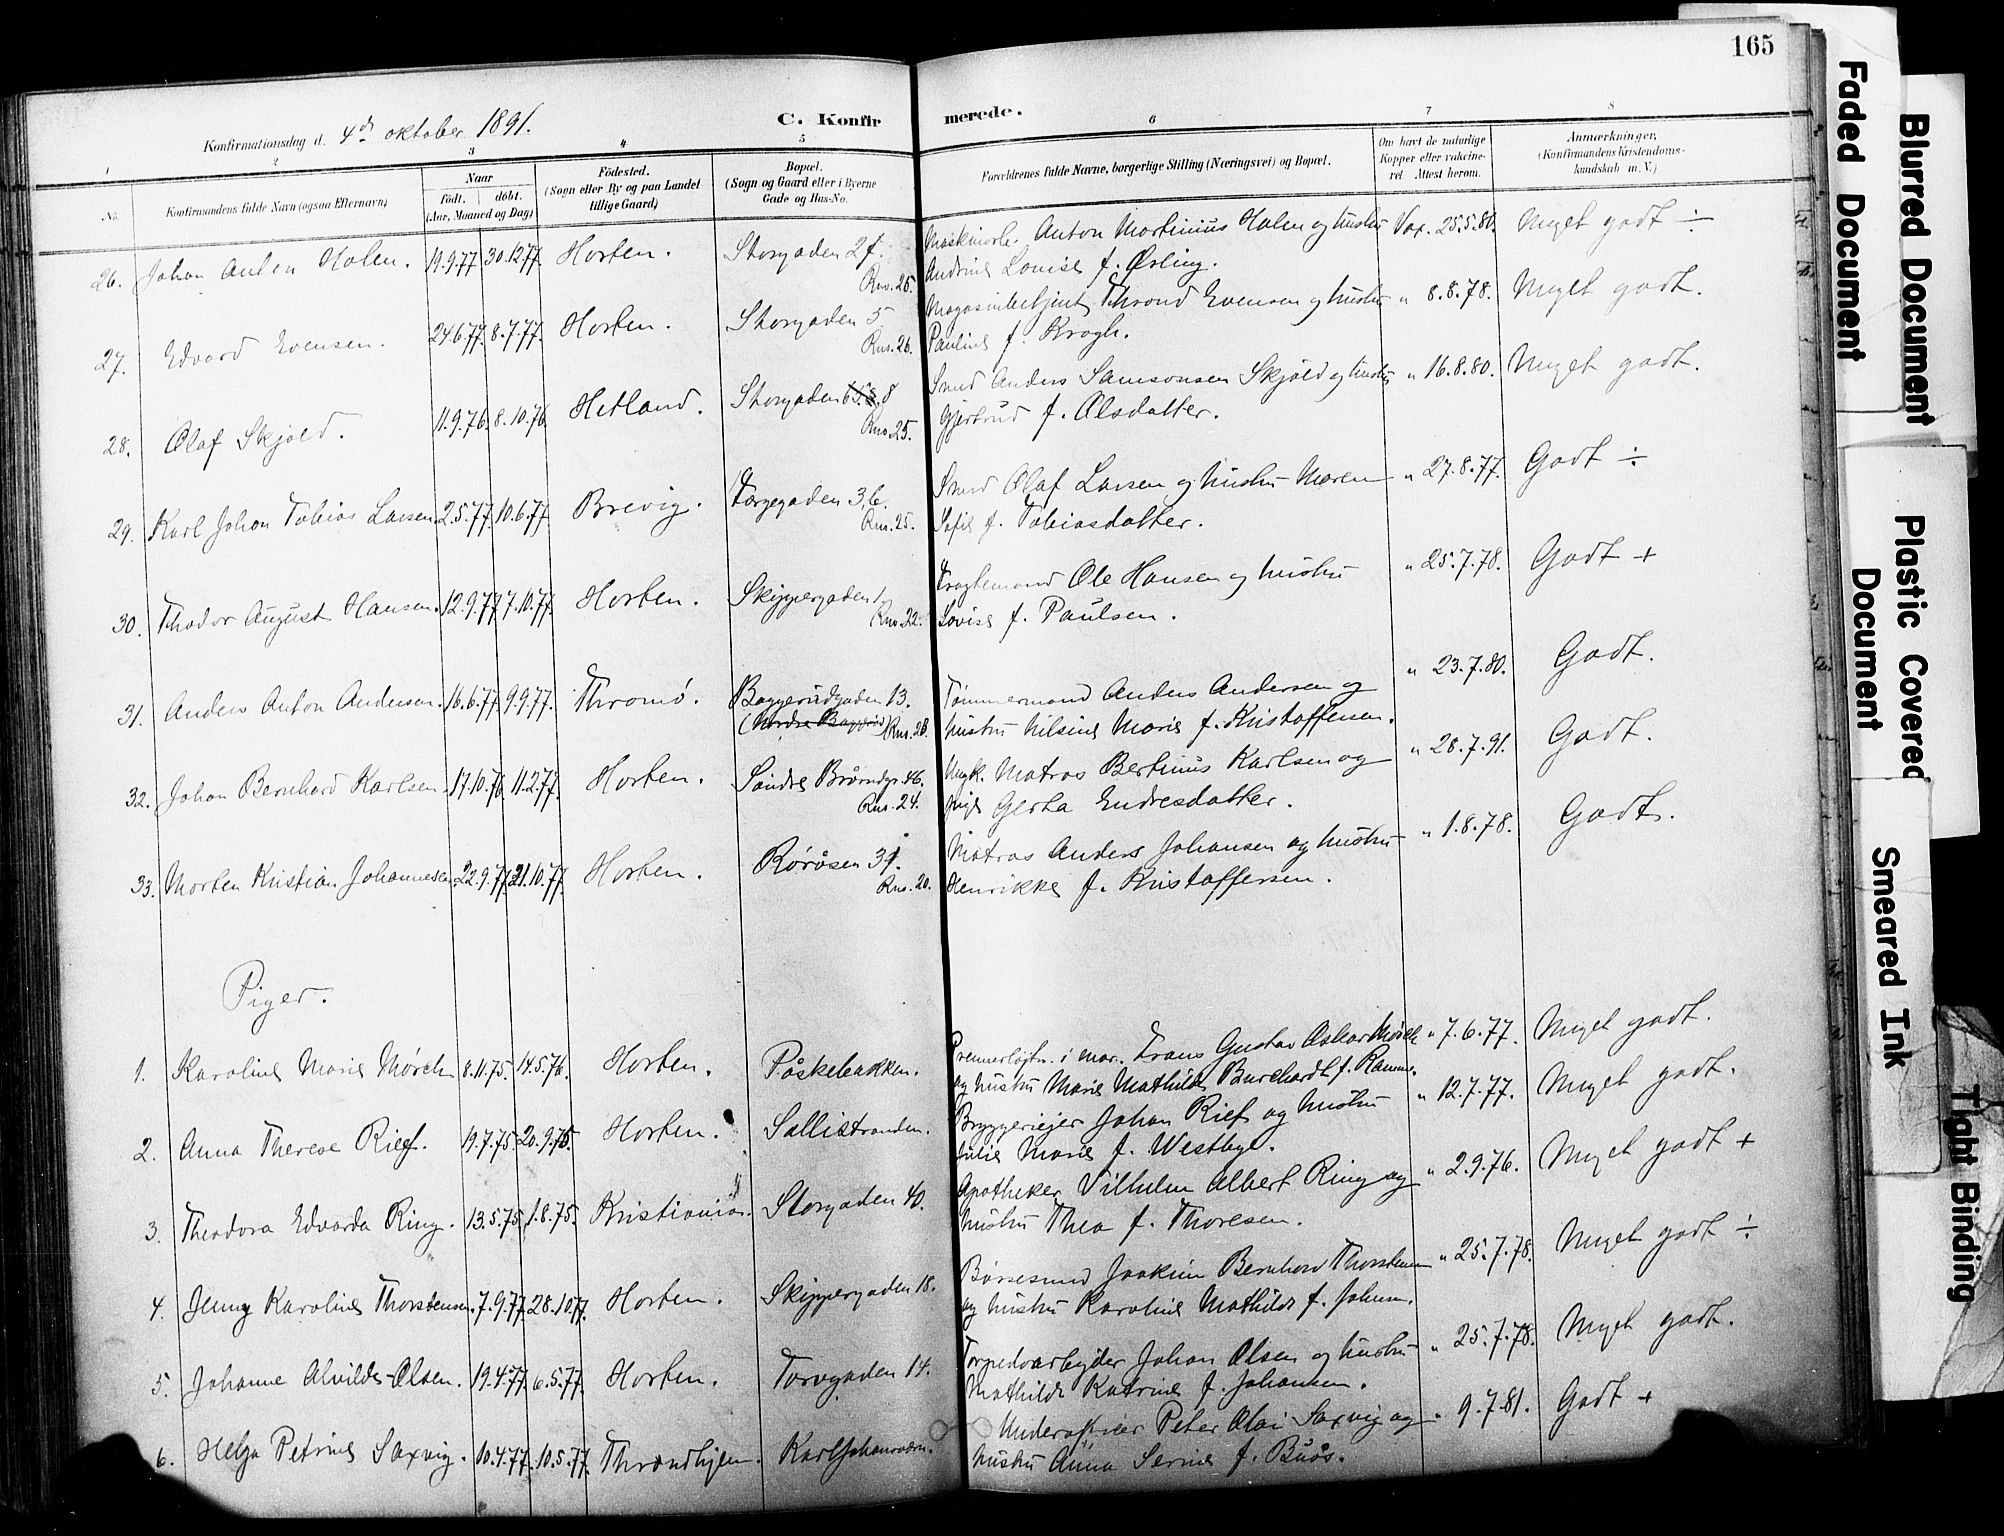 165
Konfirmationsdag d. 4de oktober 1891.
C. Konfirmerede.
1 2 3 4 5 6 7 8
No.
Konfirmandens fulde Navn (ogsaa Efternavn)
Naar
født. døbt.
(Aar, Maaned og Dag)
Fødested.
(Sogn eller By og paa Landet
tillige Gaard)
Bopæl.
(Sogn og Gaard eller i Byerne
Gade og Hus-No.
Forældrenes fulde Navne, borgerlige Stilling (Næringsvei) og Bopæl.
Om havt de naturlige
Kopper eller vakcine-
ret Attest herom.
Anmærkninger,
(Konfirmandens Kristendoms-
kundskab m. V.)
26. Johan Anton Holen. 19.9.77 30.12.77. Horten. Storgaden 27. Rns. 25. Anton Martinius Holen og hustru Vax. 25.5.80. Meget godt ÷
Andrine Louise f. Ørling.
27. Edvard Evensen. 24.6.77. 8.7.77. Horten. Storgaden 5 Rns. 26. Magasinbetjent Thrond Evensen og hustru " 8.8.78. Meget godt.
Pauline f. Krogh.
28. Olaf Skjold. 11.9.76. 8.10.76. Hetland. Storgaden 8 Rns. 25. Smed Anders Samsonsen Skjold og hustru " 16.8.80. Meget godt.
Gjertrud f. Olsdatter.
29. Karl Johan Tobias Larsen 2.5.77. 10.6.77. Brevig. Færgegaden 3,b. Rns. 25. Smed Olaf Larsen og hustru Maren " 27.8.77. Godt ÷
Sofie f. Tobiasdatter.
30. Theodor August Hansen. 12.9.77. 7.10.77. Horten. Skippergaden 1. Rns. 22. Fragtemand Ole Hansen og hustru " 25.7.78. Godt +
Lovise f. Paulsen.
31. Anders Anton Andersen. 16.6.77. 9.9.77. Thromø. Baggerødgaden 13. (Nordre Baggerød) Rns. 28. Tømmermand Anders Andersen og " 23.7.80. Godt.
hustru Nilsine Marie f. Kristoffersen.
32. Johan Bernhard Karlsen. 17.10.76. 11.2.77. Horten. Søndre 46. Rns. 24. Ungk. Matros Bertinius Karlsen og " 28.7.91. Godt.
pige Gerta Endresdatter.
33. Morten Kristian Johannesen. 22.9.77. 21.10.77. Horten. Røråsen 31. Rns. 20. Matros Anders Johansen og hustru " 1.8.78. Godt.
Henrikke f. Kristoffersen.
Piger.
1. Karoline Marie Mørch 8.11.75. 14.5.76. Horten. Påskebakken. Premierløjtn. i mar. Frans Gustav Oskar Mørch " 7.6.77. Meget godt.
og hustru Marie Mathilde Burchardt f. Ramm.
2. Anna Therese Rief. 19.7.75. 20.9.75. Horten. Sallistranden. Bryggeriejer Johan Rief og hustru " 12.7.77. Meget godt.
Julie Marie f. Westbye.
3. Theodora Edvarda Ring. 13.5.75. 1.8.75. Kristiania. Storgaden 40. Apotheker Vilhelm Albert Ring og " 2.9.76. Meget godt +
hustru Thea f. Thoresen.
4. Jenny Karoline Thorstensen. 7.9.77. 28.10.77. Horten. Skippergaden 18. Børsesmed Joakim Bernhard Thorstensen " 25.7.78. Meget godt ÷
og hustru Karoline Mathilde f. Johnsen.
5. Johanne Alvilde Olsen. 19.4.77. 6.5.77. Horten. Torvgaden 14. Torpedoarbejder Johan Olsen og hustru " 25.7.78. Meget godt.
Mathilde Katrine f. Johansen.
6. Helga Petrine Saxvig. 10.4.77. 10.5.77. Throndhjem. Karljohansværn. Underofficer Peter Olai Saxvig og " 9.7.81. Godt +
hustru Anna Serine f. Buås.
Faded Document
Blurred Document
Plastic Covered
Document
Smeared Ink
Tight Binding